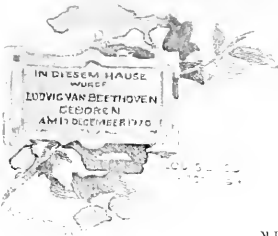 IN DIESEM HAUSE
WURDE
LUDVIG VAN BEETHOVEN
GEBOREN
AM 17 DECEMBER 1770